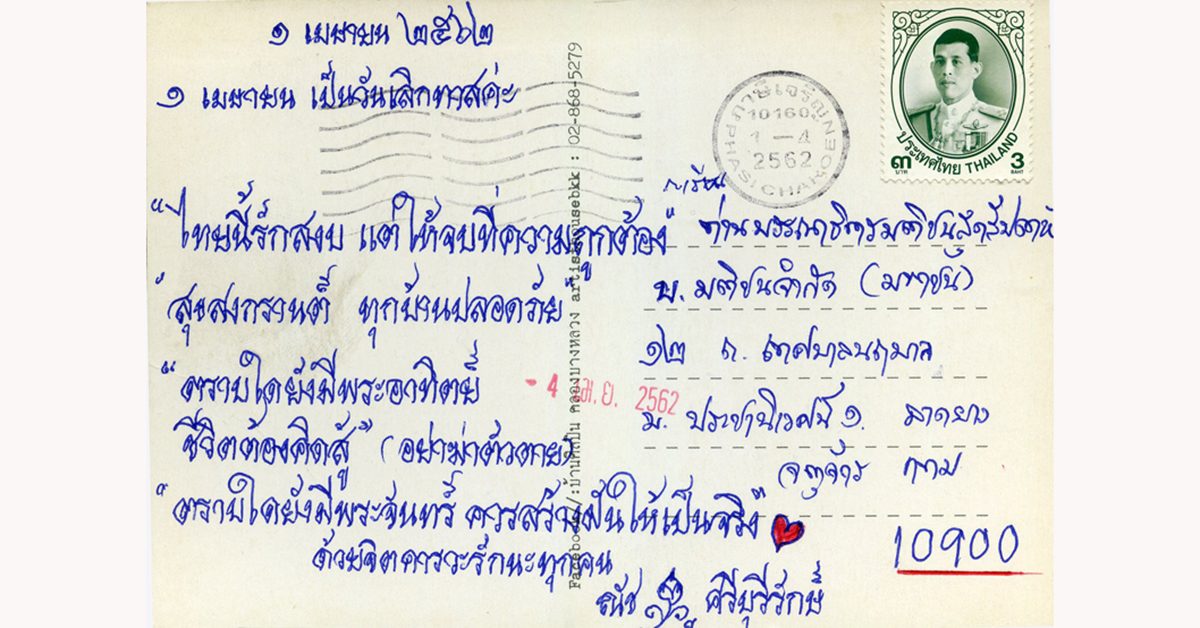 ๑ เมษายน ๒๕๖๒
๑ เมษายน เป็นวันเลิกทาสค่ะ
"ไทยนี้รักสงบ แต่ให้จบที่ความถูกต้อง"
"สุขสงกรานต์ ทุกบ้านปลอดภัย"
"ตราบใดยังมีพระอาทิตย์
ชีวิตต้องคิดสู้" (อย่าฆ่าตัวตาย)
"ตราบใดยังมีพระจันทร์ ควรสร้างฝันให้เป็นจริง"
ด้วยจิตคารวะรักนะทุกคน
ธนัช ศิริบุรีรักษ์
Facebook/:บ้านศิลปิน คลองบางหลวง artisthousebkk : 02-868-5279
ภาษีเจริญ
10160
1-4
2562
PHASI CHAROEN
ประเทศไทย THAILAND
๓ บาท 3 BAHT
กราบเรียน
ท่านบรรณาธิการมติชนสุดสัปดาห์
บ. มติชนจำกัด (มหาชน)
๑๒ ถ. เทศบาลนฤมาล
ม. ประชานิเวศน์ ๑. ลาดยาว
จตุจักร กทม
10900
- 4 เม.ย. 2562